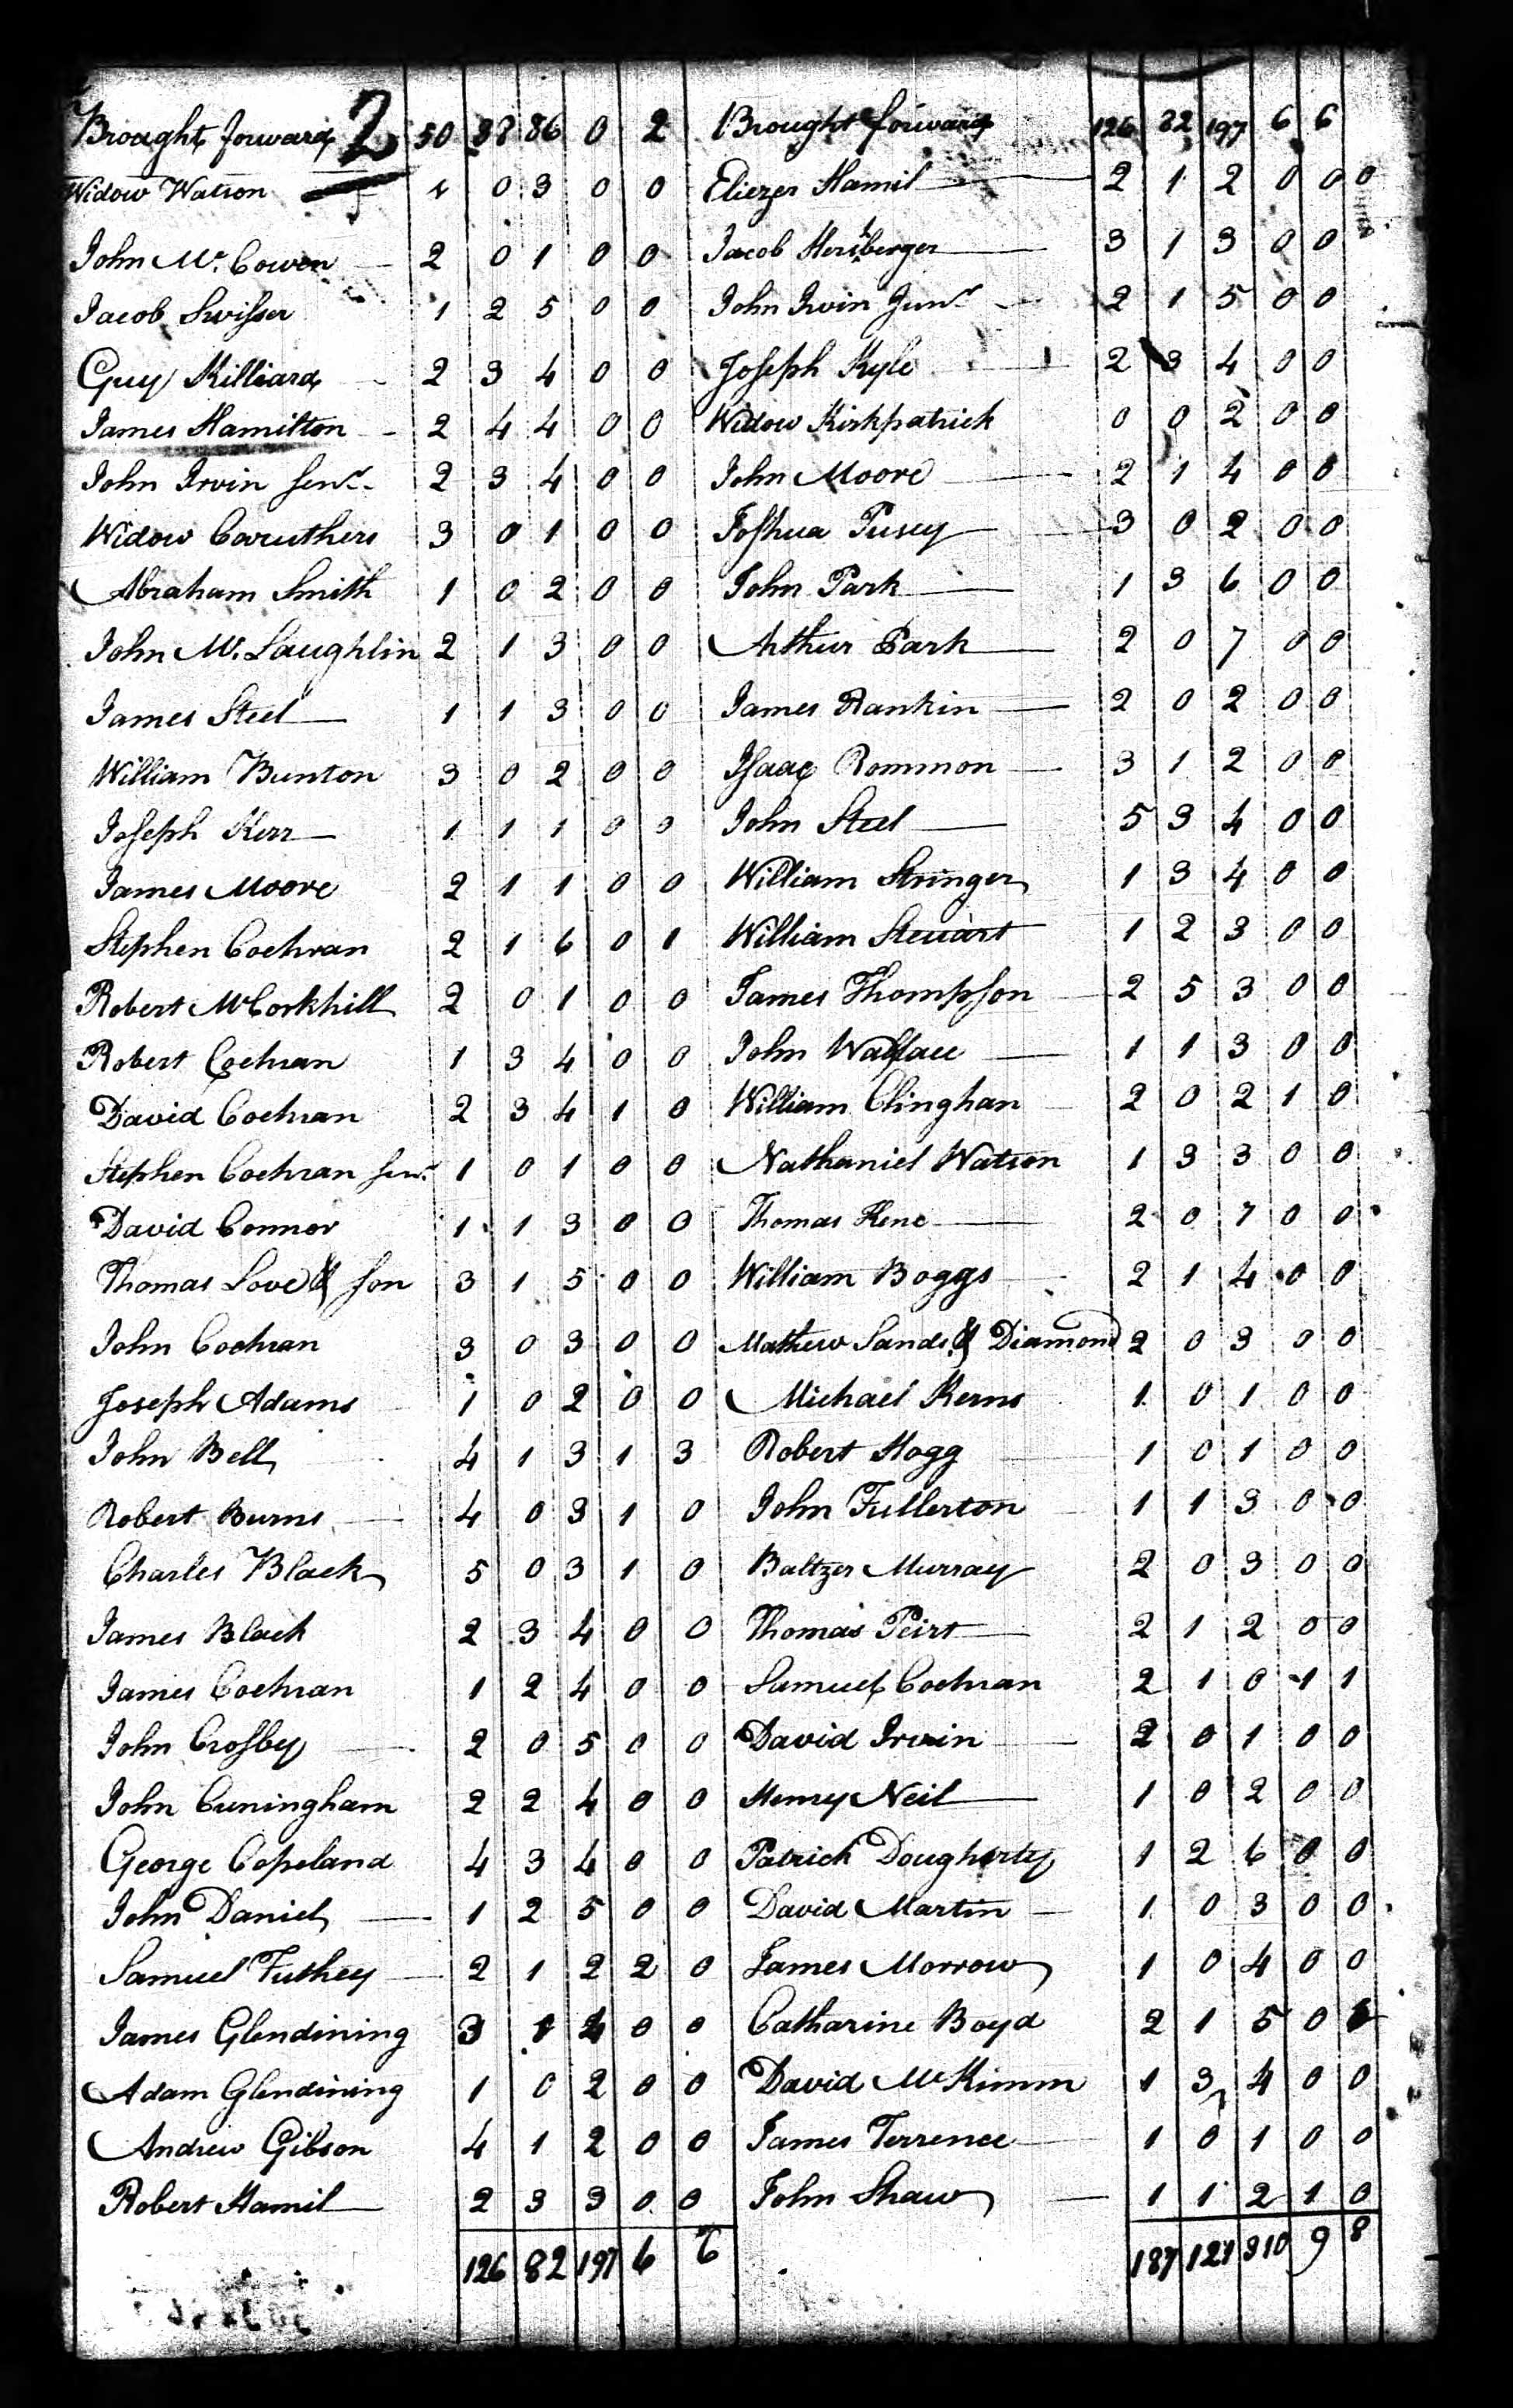 Brought forward 2 50 38 86 0 2
Widow Watson 1 0 3 0 0
John Mc. Cowen 2 0 1 0 0
Jacob Swisser 1 2 5 0 0
Guy Killiard 2 3 4 0 0
James Hamilton 2 4 4 0 0
John Irvin Senr. 2 3 4 0 0
Widow Caruthers 3 0 1 0 0
Abraham Smith 1 0 2 0 0
John Mc. Laughlin 2 1 3 0 0
James Steel 1 1 3 0 0
William Bunton 3 0 2 0 0
Joseph Kerr 1 1 1 0 0
James Moore 2 1 1 0 0
Stephen Cochran 2 1 6 0 1
Robert McCorkhill 2 0 1 0 0
Robert Cochran 1 3 4 0 0
David Cochran 2 3 4 1 0
Stephen Cochran Senr. 1 0 1 0 0
David Connor 1 1 3 0 0
Thomas Love & Son 3 1 5 0 0
John Cochran 3 0 3 0 0
Joseph Adams 1 0 2 0 0
John Bell 4 1 3 1 3
Robert Burns 4 0 3 1 0
Charles Black 5 0 3 1 0
James Black 2 3 4 0 0
James Cochran 1 2 4 0 0
John Crosby 2 0 5 0 0
John Cuningham 2 2 4 0 0
George Copeland 4 3 4 0 0
John Daniel 1 2 5 0 0
Samuel Futhey 2 1 2 2 0
James Glendining 3 1 0 0
Adam Glendining 1 0 2 0 0
Andrew Gibson 4 1 2 0 0
Robert Hamil 2 3 3 0 0
126 82 197 6 6
Brought forward 126 82 197 6 6
Eliezer Hamil 2 1 2 0 0 0
Jacob Hershberger 3 1 3 0 0
John Irvin Junr 2 1 5 0 0
Joseph Kyle 2 3 4 0 0
Widow Kirkpatrick 0 0 2 0 0
John Moore 2 1 4 0 0
Joshua Pusey 3 0 2 0 0
John Park 1 3 6 0 0
Arthur Park 2 0 7 0 0
James Rankin 2 0 2 0 0
Isaac Rommon 3 1 2 0 0
John Steel 5 3 4 0 0
William Stringer 1 3 4 0 0
William Steuart 1 2 3 0 0
James Thompson 2 5 3 0 0
John Wallace 1 1 3 0 0
William Clinghan 2 0 2 1 0
Nathaniel Watson 1 3 3 0 0
Thomas Hene 2 0 7 0 0
William Boggs 2 1 4 0 0
Mathew Sands & Diamond 2 0 3 0 0
Michael Kerns 1 0 1 0 0
Robert Hogg 1 0 1 0 0
John Fullerton 1 1 3 0 0
Baltzer Murray 2 0 3 0 0
Thomas Peirt 2 1 2 0 0
Samuel Cochran 2 1 0 1 1
David Irvin 2 0 1 0 0
Henry Neil 1 0 2 0 0
Patrick Dougherty 1 2 6 0 0
David Martin 1 0 3 0 0
James Morrow 1 0 4 0 0
Catharine Boyd 2 1 5 0
David McKimm 1 3 4 0 0
James Terrence 1 0 1 0 0
John Shaw 1 1 2 1 0
187 121 310 9 8